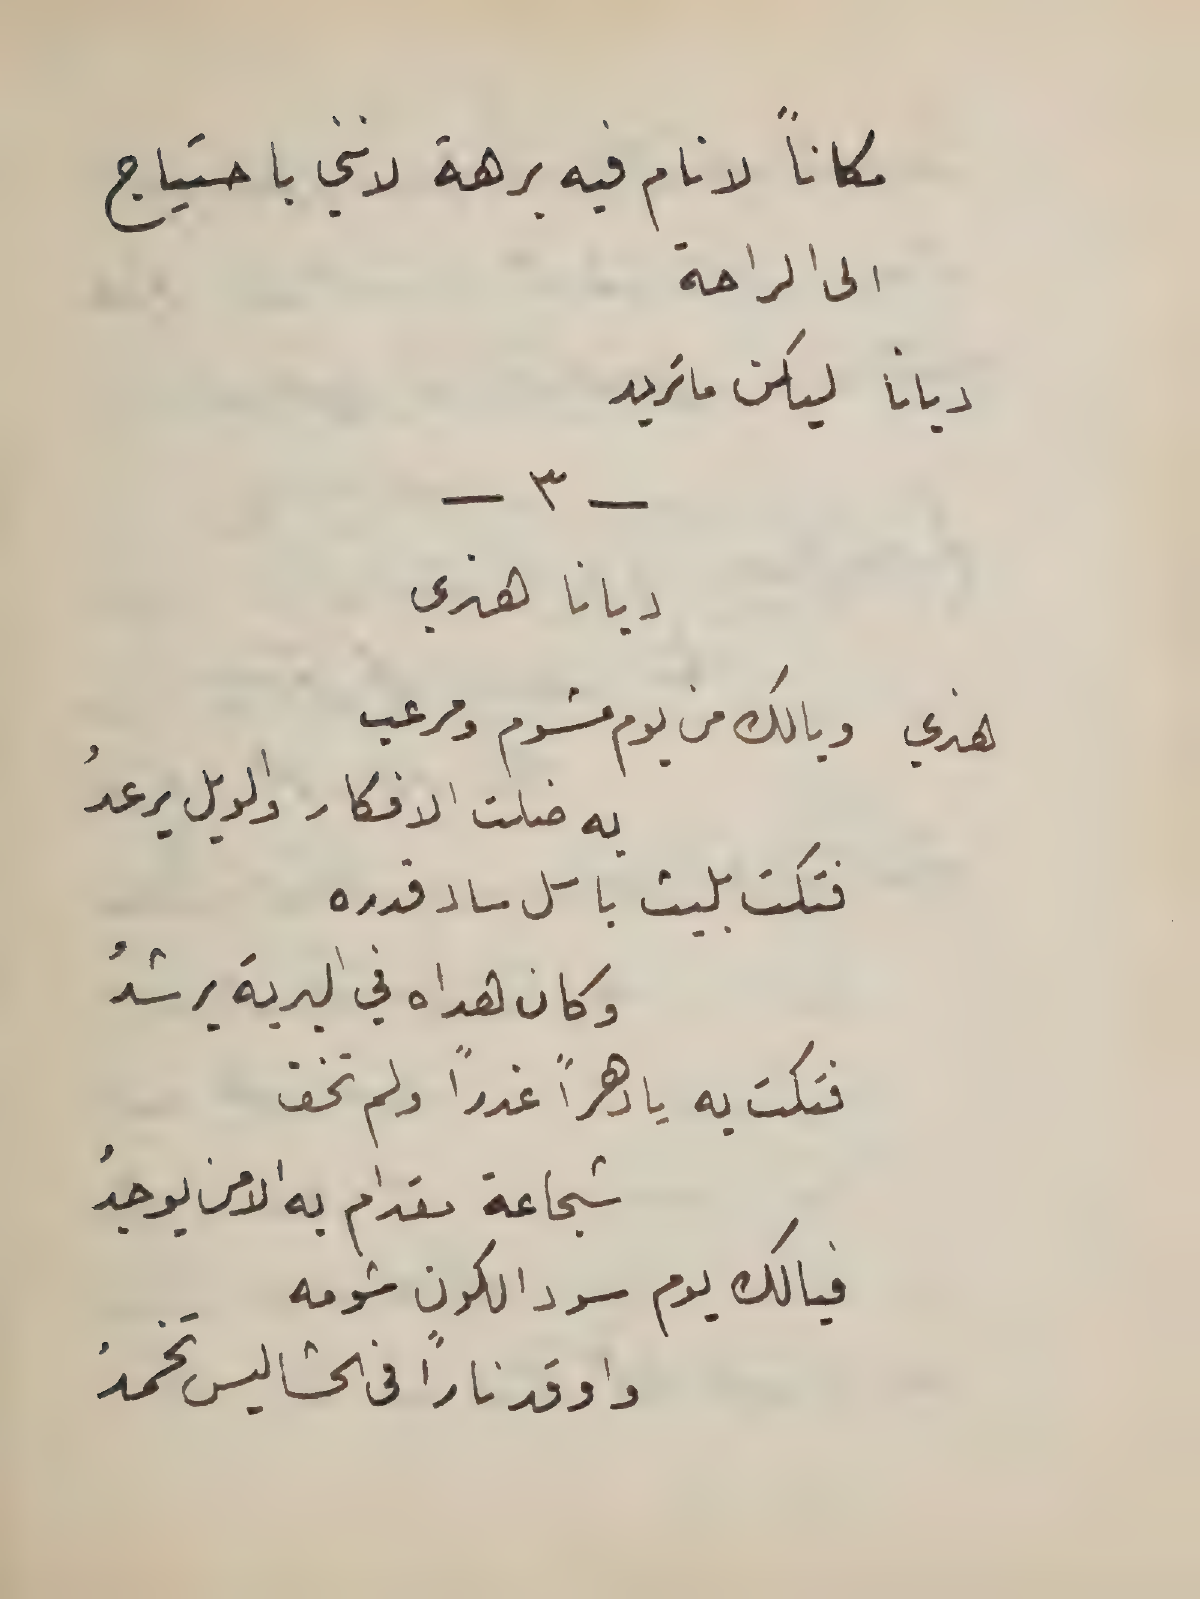 مكاناً لانام فيه برهة لانني باحتياج
الى الراحة
ديانا ليكن ماتريد
— ٣ —
ديانا هنري
هنري ويالك من يوم مشوم ومرعب
به ضلت الافكار والويل يرعدُ
فتكت بليث باسل ساد قدره
وكان هداه في البرية يرشدُ
فتكت به يا دهراً غدراً ولم تخف
شجاعة مقدام به الامن يوجدُ
فيالك يوم سود الكون شومه
واوقد ناراً في الحشا ليس تخمدُ